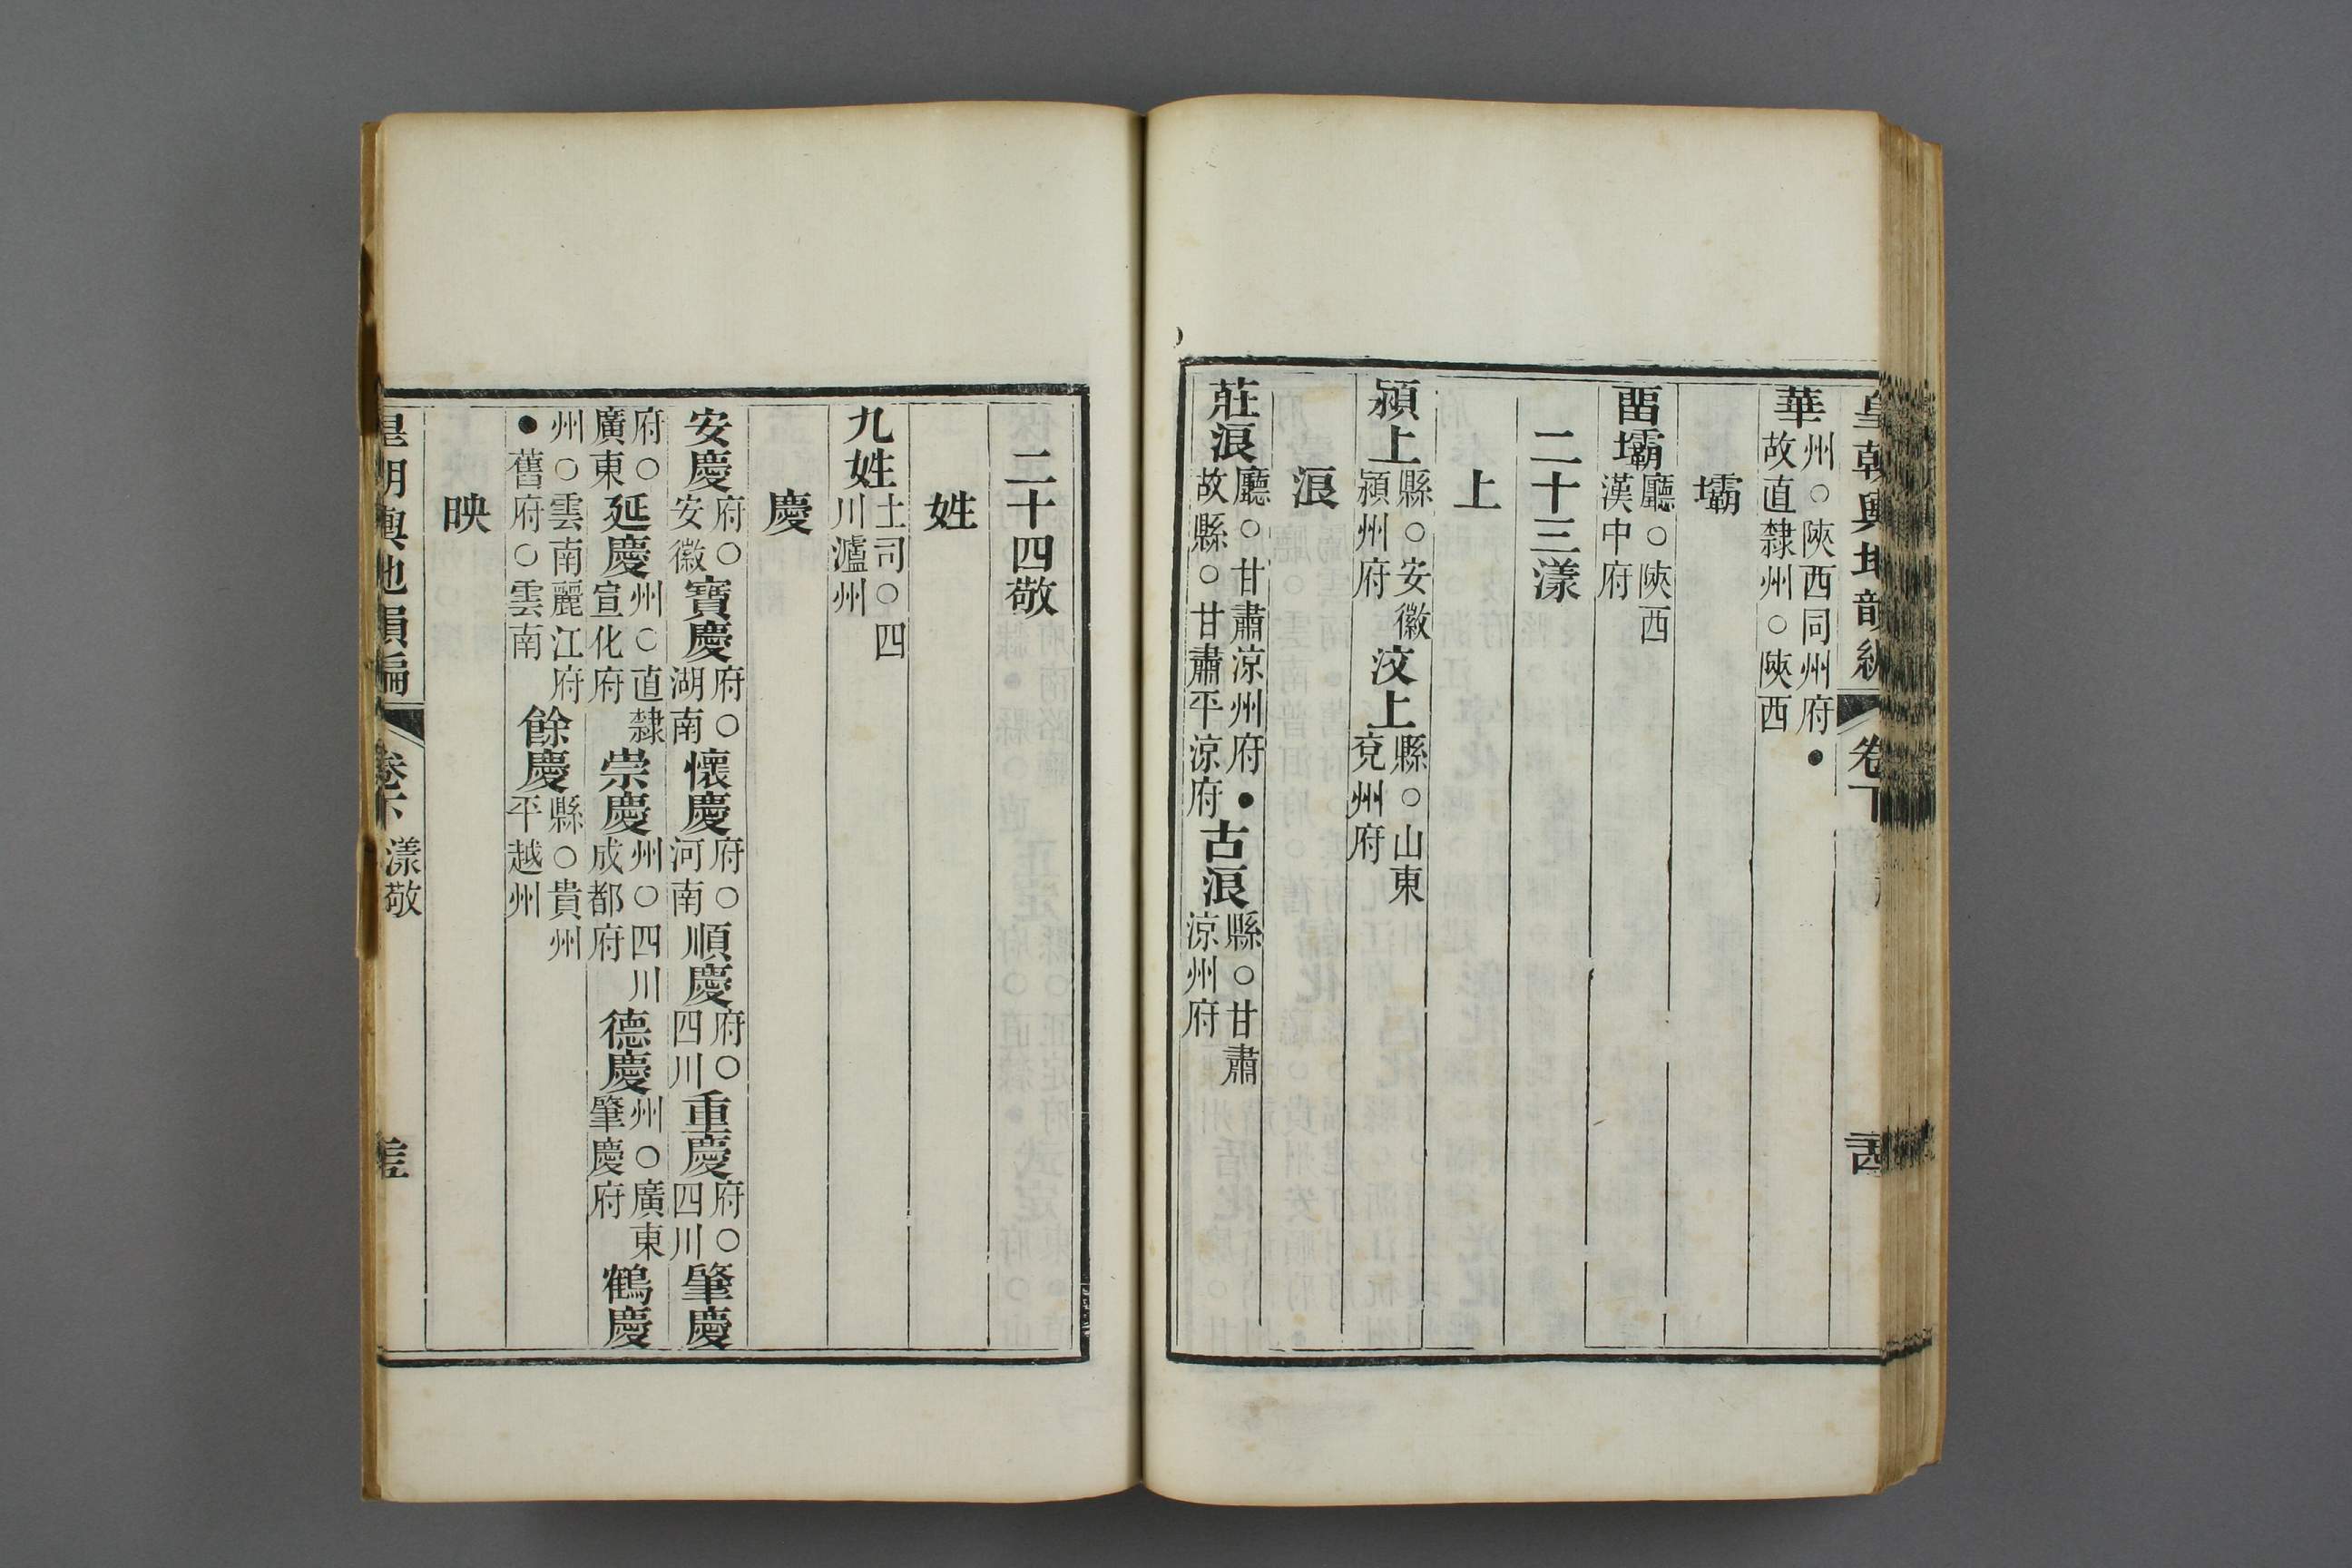 皇朝輿地韻編 卷下
華州○陝西同州府●故直隸州○陝西
壩
畱壩廳○陝西漢中府
二十三漾
上
潁上縣○安徽潁州府汶上縣○山東兗州府
浪
莊浪廳○甘肅涼州府●故縣○甘肅平涼府古浪縣○甘肅涼州府
二十四敬
姓
九姓土司○四川瀘州
慶
安慶府○安徽寶慶府○湖南懷慶府○河南順慶府○四川重慶府○四川肇慶
府○廣東延慶州○直隸宣化府崇慶州○四川成都府德慶州○廣東肇慶府鶴慶
州○雲南麗江府●舊府○雲南餘慶縣○貴州平越州
映
皇朝輿地韻編 卷下 漾敬